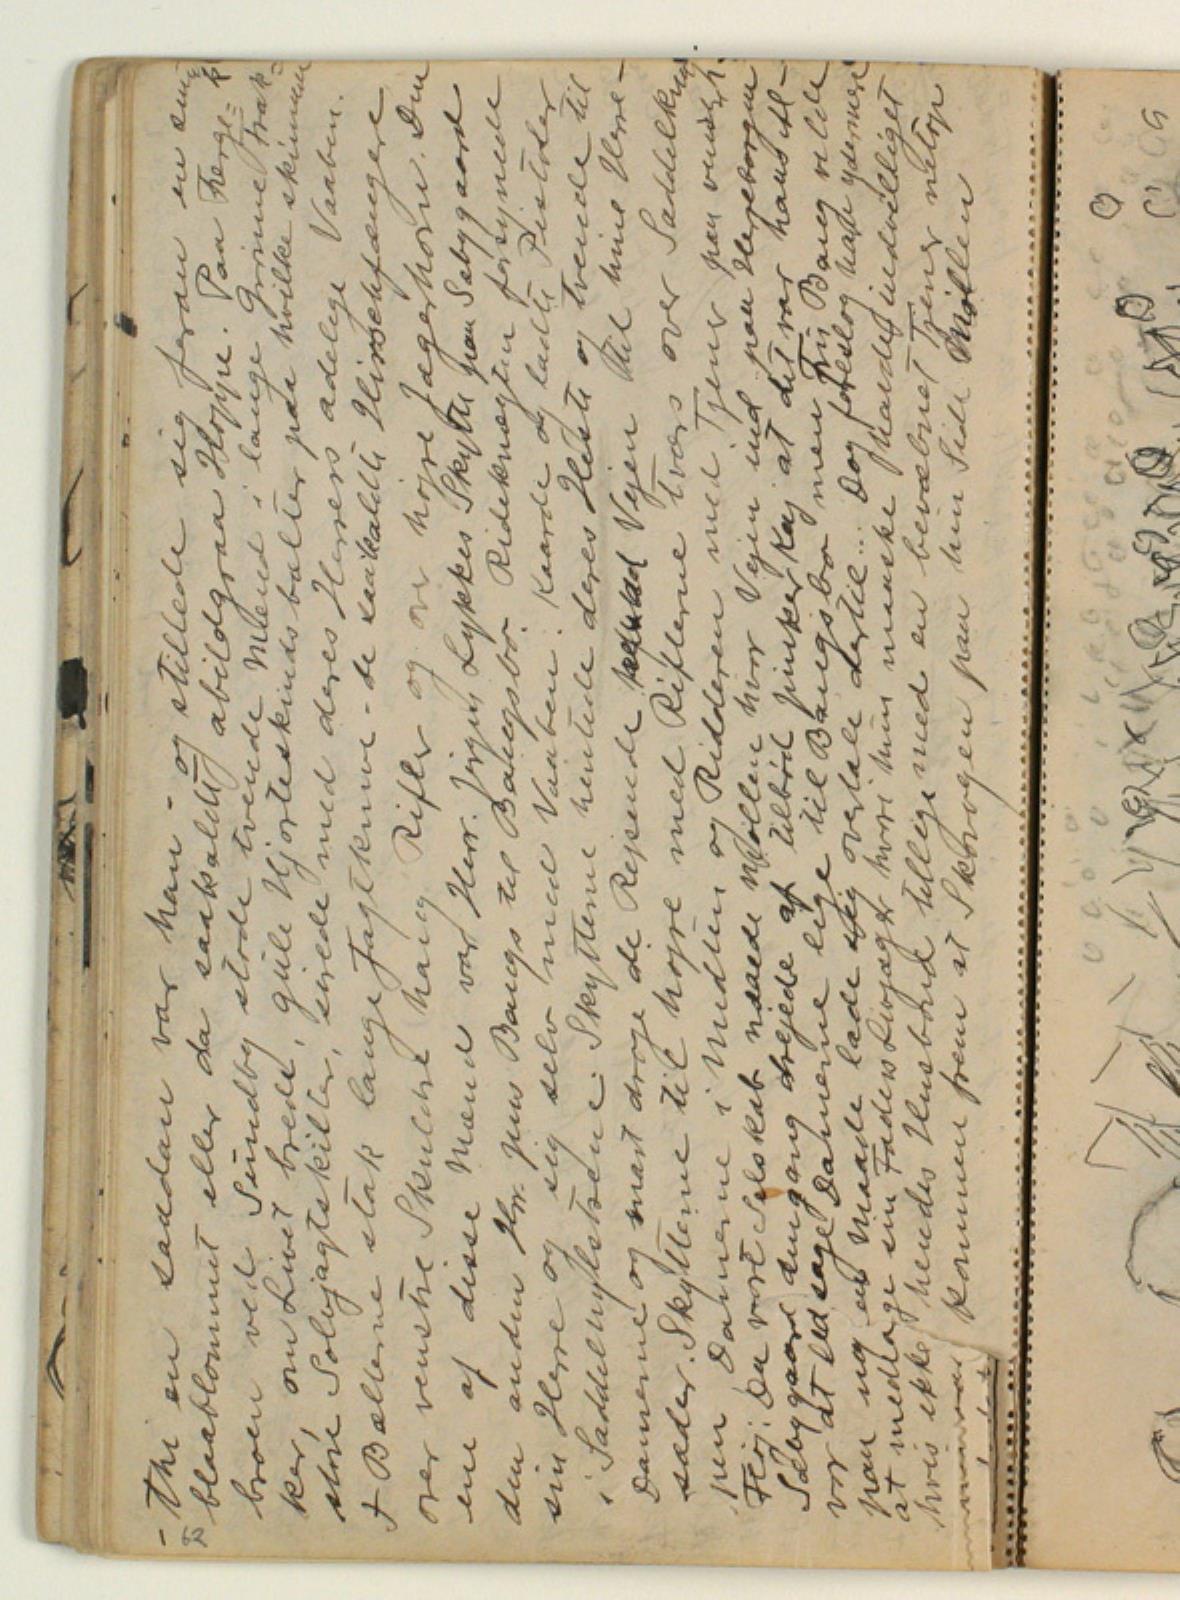 - thi en saadan var han - og stillede sig foran en saa-
blaablommet eller da saakaldte abildgraa Hoppe. Paa Færge-
broen ved Sundby stode tvende Mænd i lange Grønne Frak-
ker, om Livet brede, gule Hjorteskindsbælter paa hvilke skinnen
store Sølvjagtskilter, sirede med deres Herrers adelige Vaaben.
I Bælterne stak lange Jagtknive - de saakaldte Hirschfængere
over venstre Skuldre hang Rifler og over højre Jægerhorn. Den
ene af disse Mænd var Herr. Jørgen Lykkes Skytte fra Sæbygaard
den anden Hr. Jens Bangs til Bangsbo. Rideknægten forsynede
sin Herre og sig selv med Vaaben: Kaarde og ladte Pistoler
i Saddelhylstrene. Skytterne hentede deres Heste og tvende til
Damerne og snart droge de Rejsende Vejen til hine Herre-
sæder. Skytterne til højre med Riflerne tvers over Saddelknap
pen Damerne i Midten og Ridderen med Tjener paa venstre
Fløj. Da vort Selskab naaede Møllen hvor Vejen ind paa Herreborgen
Sæbygaard dengang drejede af tilbød Junker Kaj at det var hans Til-
vor at ledsage Damerne lige til Bangsbo men Frii Bang vilde
paa ing en Maade lade sig overtale dertil... Dog foreslog hans ydermere
at medtage sin Faders Livjæger hvori hun maaske havde indvilliget
hvis ikke hendes Husbond tillige med en bevæbnet Tjener netop
kommen frem at Skovvejen paa hin Side Møllen